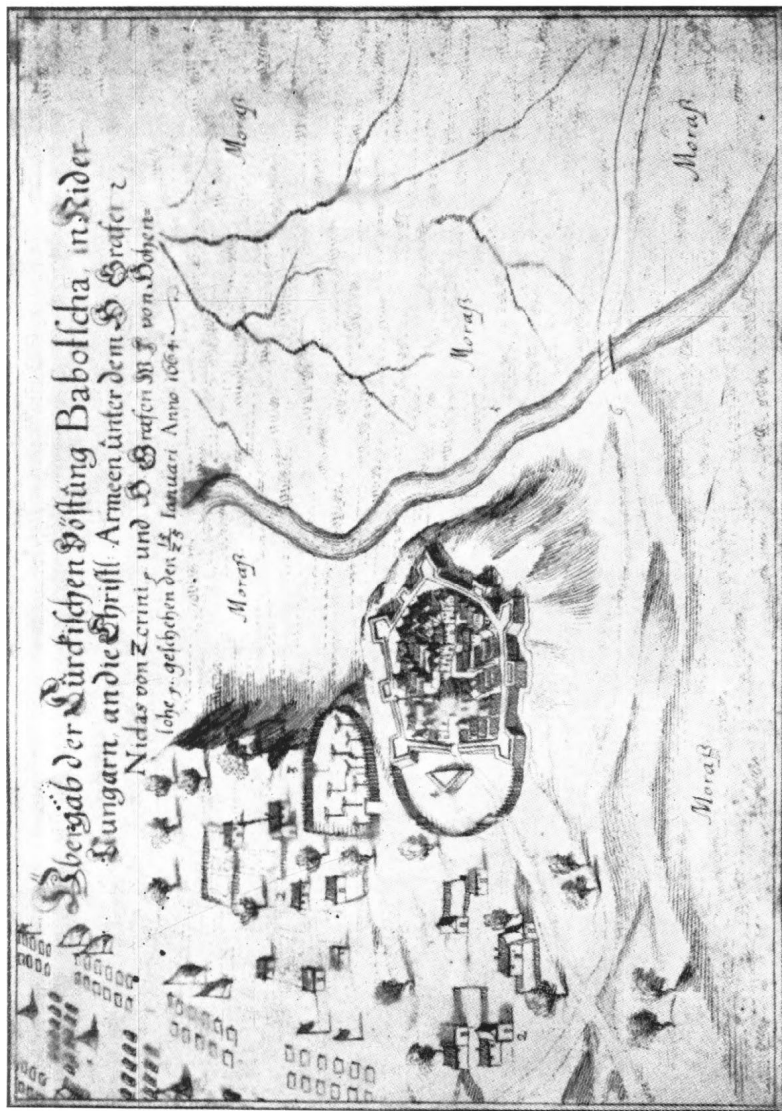 Übergab der Türckischen Vöstung Babotscha, in Nider-
Vungarn, an die Christl: Armeen unter dem H Grafen
Niclas von Zerini, und H Grafen W J von Hohen=
lohe geschehen den 13/23 Ianuari Anno 1664.
Moraß
Moraß
Moraß
Moraß
Moraß
2
2